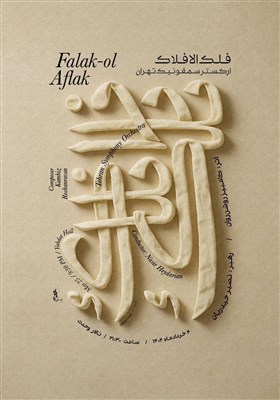 Falak-ol
Aflak
فلک‌الافلاک
ارکستر سمفونیک تهران
Composer
Kambiz
Roshanravan
Tehran Symphony Orchestra
Conductor: Nasir Heidarian
May 25 / 9:30 PM / Vahdat Hall
اثر: کامبیز روشن‌روان / رهبر: نصیر حیدریان
۴ خردادماه ۱۴۰۴ / ساعت ۲۱:۳۰ / تالار وحدت